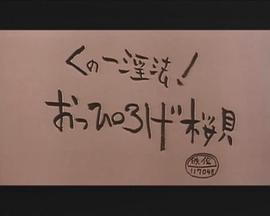 くの一淫法!
おっぴろげ桜貝
映倫
117048